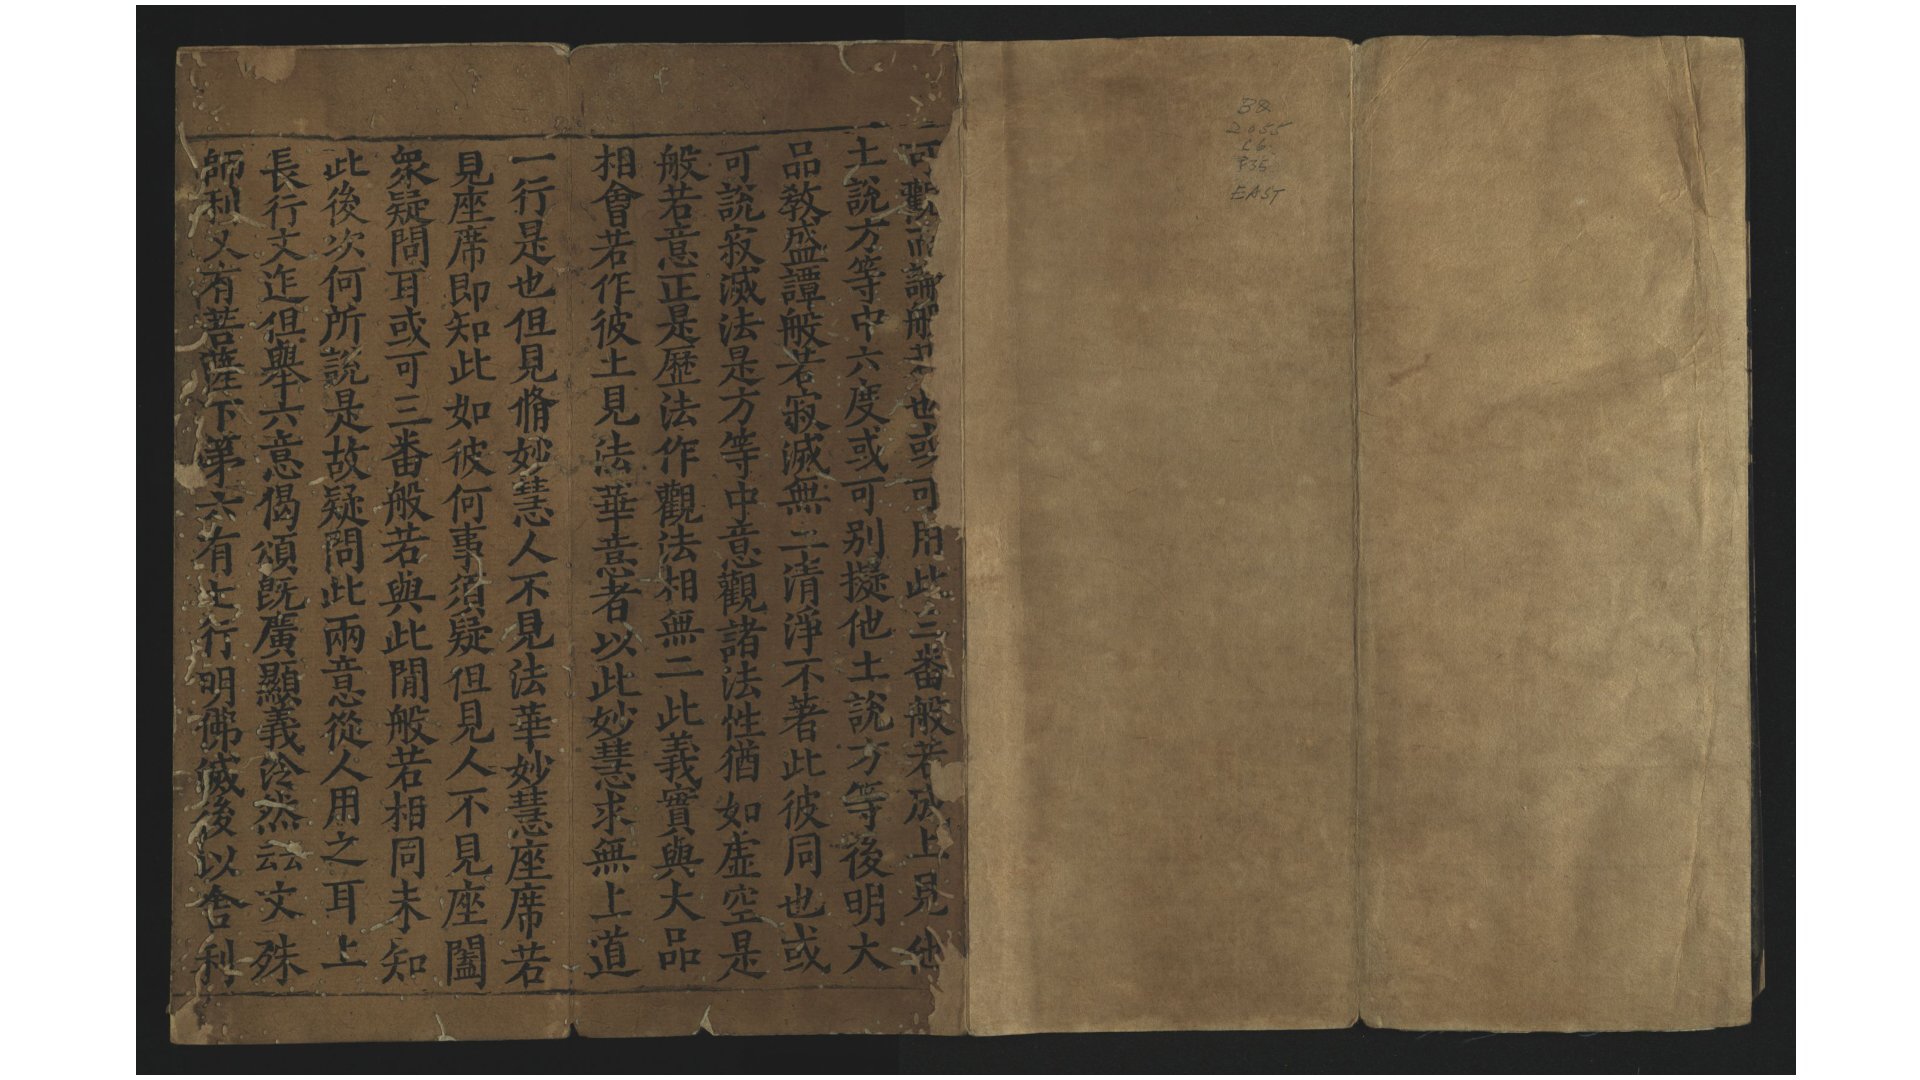 BQ
2055
C6
F35
EAST
可觀而論般若也或可用此三番般若成上見他
土說方等中六度或可別擬他土說方等後明大
品教盛譚般若寂滅無二清淨不著此彼同也或
可說寂滅法是方等中意觀諸法性猶如虛空是
般若意正是歷法作觀法相無二此義實與大品
相會若作彼土見法華意者以此妙慧求無上道
一行是也但見脩妙慧人不見法華妙慧座席若
見座席即知此如彼何事須疑但見人不見座闔
衆疑問耳或可三番般若與此閒般若相同未知
此後次何所說是故疑問此兩意從人用之耳上
長行文迮但舉六意偈頌既廣顯義泠然云云文殊
師利又有菩薩下第六有七行明佛滅後以舍利